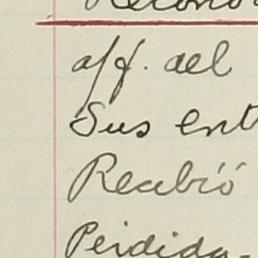 aff. del
Sus ent
Recibió
Perdida